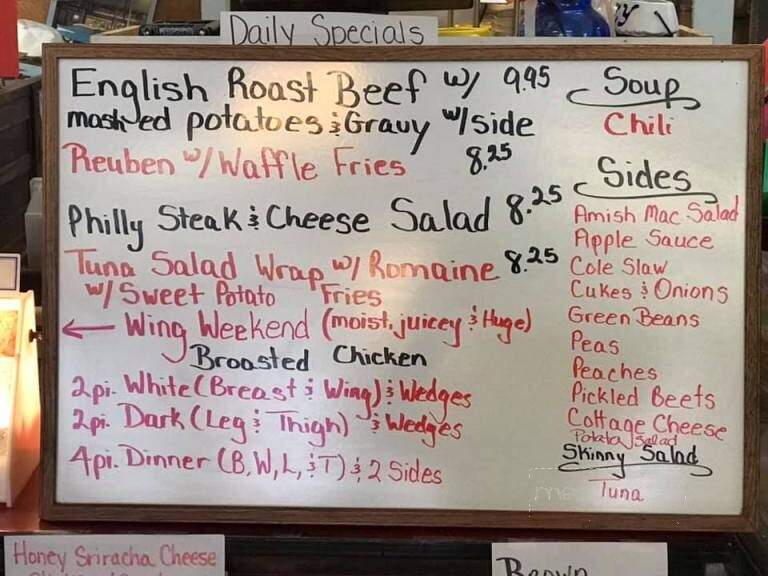 Daily Specials
English Roast Beef w/ 9.95
mashed potatoes & Gravy w/side
Reuben w/ Waffle Fries 8.25
Philly Steak & Cheese Salad 8.25
Tuna Salad Wrap w/ Romaine 8.25
w/ Sweet Potato Fries
← Wing Weekend (moist, juicey & Huge)
Broasted Chicken
2pi. White (Breast & Wing) & Wedges
2pi. Dark (Leg & Thigh) & Wedges
4pi. Dinner (B, W, L, & T) & 2 Sides
Soup
Chili
Sides
Amish Mac Salad
Apple Sauce
Cole Slaw
Cukes & Onions
Green Beans
Peas
Peaches
Pickled Beets
Cottage Cheese
Potato Salad
Skinny Salad
Tuna
Honey Sriracha Cheese
Brown